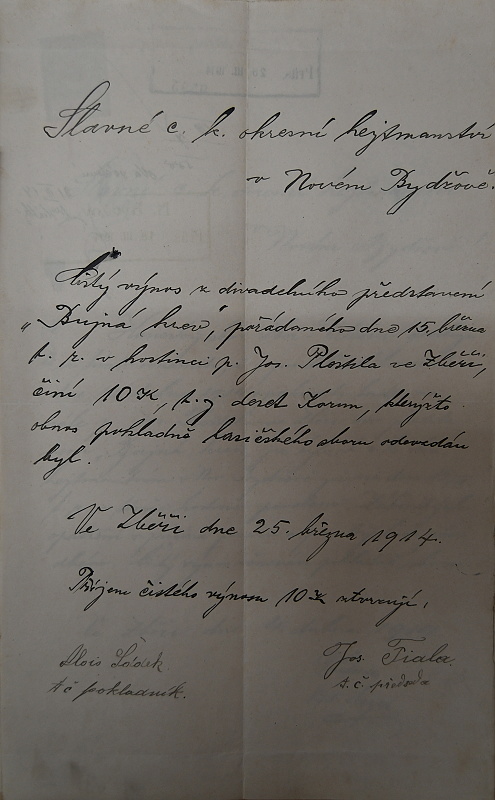 Slavné c. k. okresní hejtmanství
v Novém Bydžově.
Čistý výnos z divadelního představení
„Bujná krev", pořádaného dne 15. března
t. r. v hostinci p. Jos. Ploštila ve Zběři,
činí 10 K, t. j. deset Korun, kterýžto
obnos pokladně hasičského sboru odevzdán
byl.
Ve Zběři dne 25. března 1914.
Příjem čistého výnosu 10 K stvrzují,
Alois Jos. Fiala.
t. č. pokladník. t. č. předseda